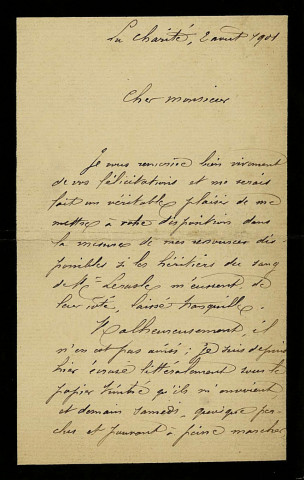 La Charité, 2 août 1901
Cher monsieur
Je vous remercie bien vivement
de vos félicitations et me serais
fait un véritable plaisir de me
mettre à votre disposition dans
la mesure de mes ressources dis-
ponibles si les héritiers du sang
de Mme m'eussent, de
leur côté, laissé tranquille.
Malheureusement, il
n'en est pas ainsi ; je suis depuis
hier écrasé littéralement sous le
papier timbré qu'ils m'envoient
et demain samedi, quoique per-
clus et pouvant à peine marcher